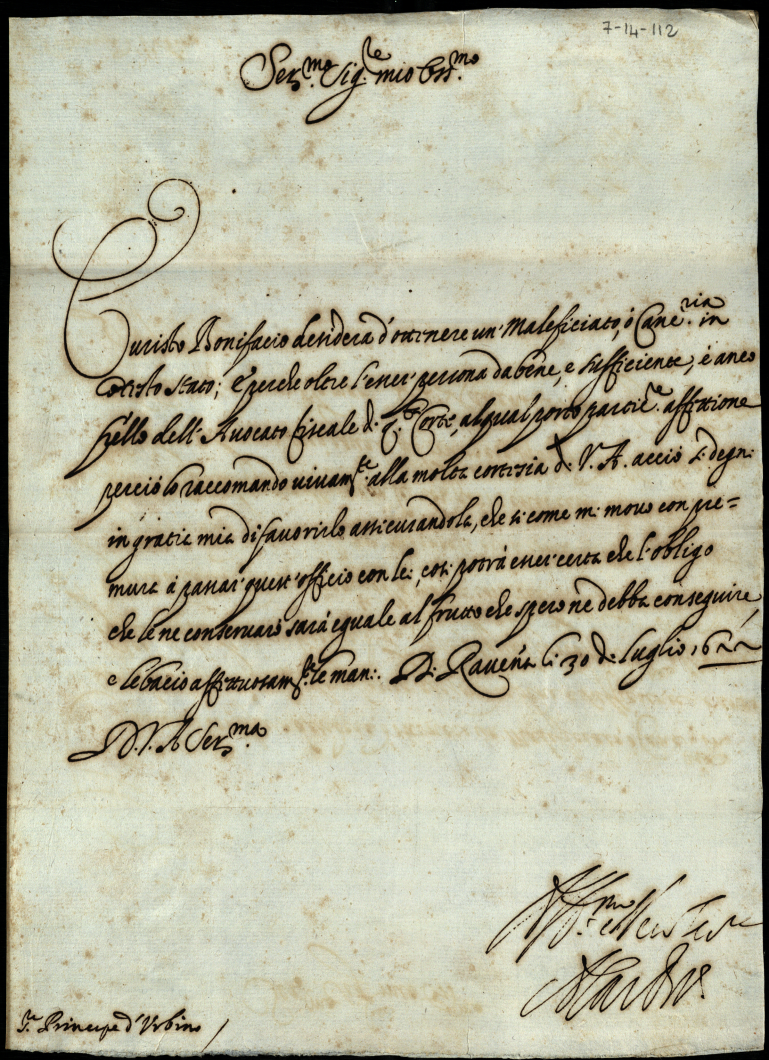 7-14-112
Ser.mo Sig.re mio Oss.mo
Curisto Bonifacio desidera d'ottenere un Maleficiato, ò Canc.ria in
cotesto stato; e perche oltre l'esser persona da bene, e sufficiente, è anco
fr'ello dell'Avocato fiscale di q.ta Corte, al qual porto partic.re affettione
perciò lo raccomando vivam.te alla molta cortesia di V. A. acciò si degni
in gratia mia di favorirlo assicurandola, che si come mi movo con pre=
mura à passar quest'officio con lei, così potrà esser certa che l'obligo
che le ne conservarò sarà eguale al frutto che spero ne debba conseguire
e le bacio affettuosam.te le mani. Di Raven'a li 30 di luglio 1622
D. V. A Ser.ma
S.r Principe d'Urbino